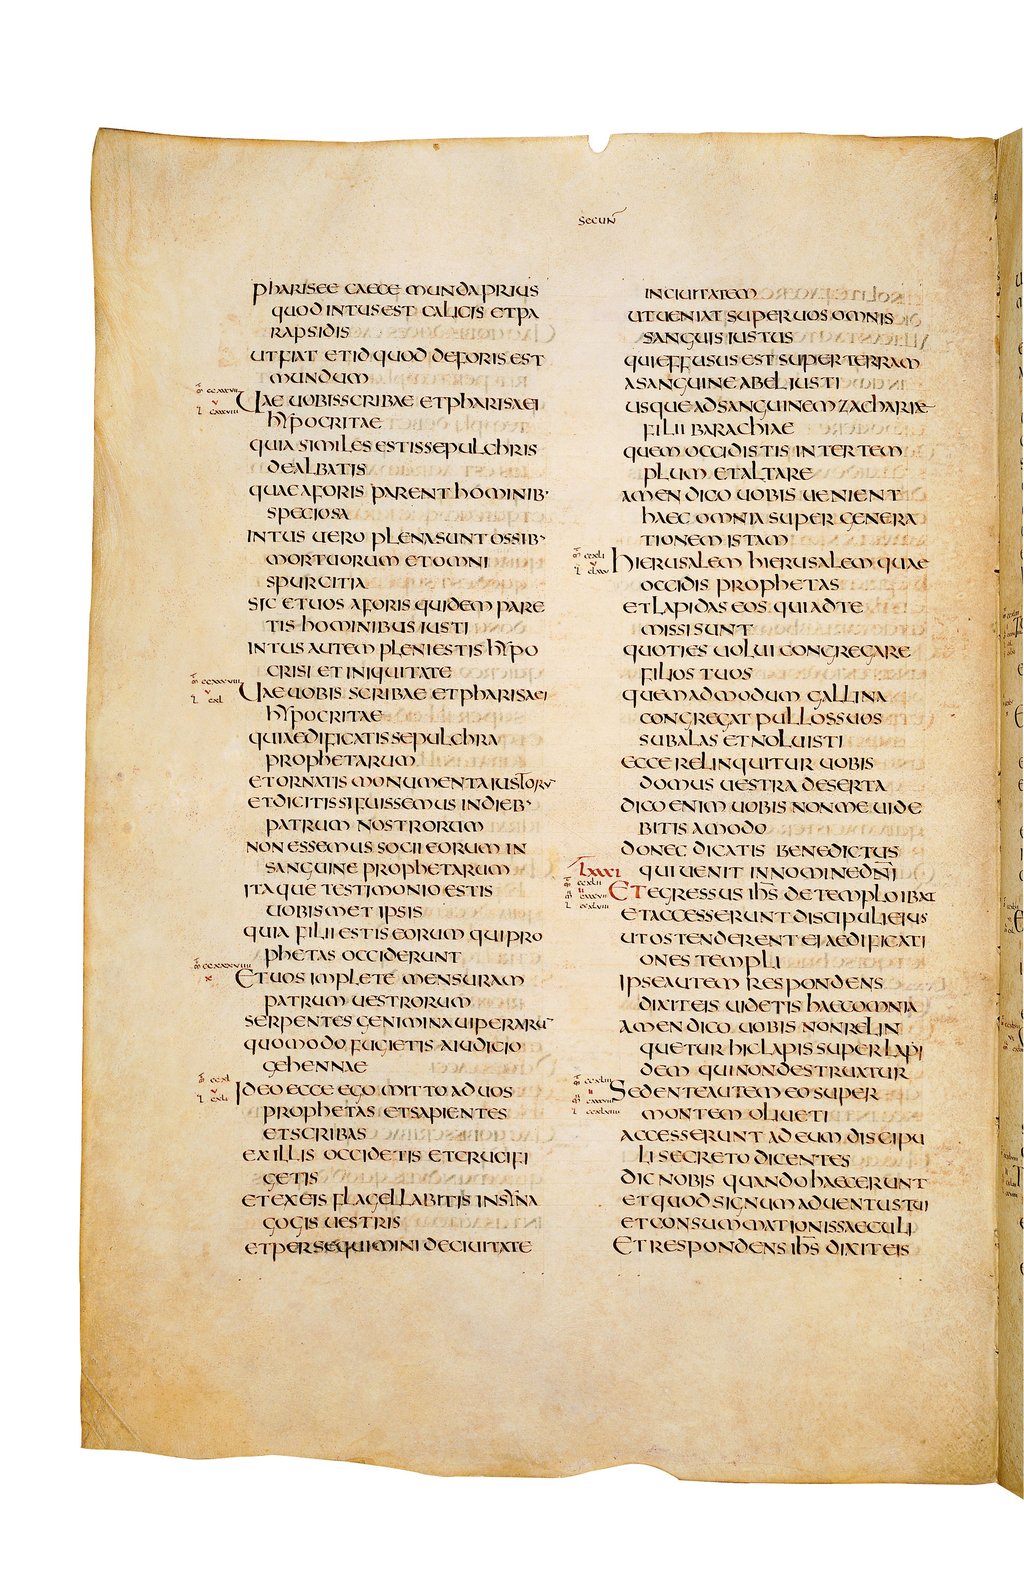 secun
pharisee caece munda prius
quod intus est calicis et pa
rapsidis
ut fiat et id quod deforis est
mundum
Uae uobis scribae et pharisaei
hypocritae
quia similes estis sepulchris
dealbatis
quae aforis parent hominib·
speciosa
intus uero plena sunt ossib·
mortuorum et omni
spurcitia
sic et uos aforis quidem pare
tis hominibus iusti
intus autem pleni estis hypo
crisi et iniquitate
Uae uobis scribae et pharisaei
hypocritae
quia edificatis sepulchra
prophetarum
et ornatis monumenta iustoru
et dicitis si fuissemus in dieb·
patrum nostrorum
non essemus socii eorum in
sanguine prophetarum
itaque testimonio estis
uobismet ipsis
quia filii estis eorum qui pro
phetas occiderunt
Et uos implete mensuram
patrum uestrorum
serpentes genimina uiperaru
quomodo fugietis a iudicio
gehennae
Ideo ecce ego mitto ad uos
prophetas et sapientes
et scribas
ex illis occidetis et crucifi
getis
et ex eis flagellabitis in syna
gogis uestris
et persequimini de ciuitate
in ciuitatem
ut ueniat super uos omnis
sanguis iustus
qui effusus est super terram
a sanguine abel iusti
usque ad sanguinem zachariae
filii barachiae
quem occidistis inter tem
plum et altare
amen dico uobis uenient
haec omnia super genera
tionem istam
hierusalem hierusalem quae
occidis prophetas
et lapidas eos qui ad te
missi sunt
quoties uolui congregare
filios tuos
quemadmodum gallina
congregat pullos suos
sub alas et noluisti
ecce relinquitur uobis
domus uestra deserta
dico enim uobis non me uide
bitis amodo
donec dicatis benedictus
qui uenit in nomine dn̄i
lxxxi
Et egressus ihs̄ de templo ibat
et accesserunt discipuli eius
ut ostenderent ei aedificati
ones templi
Ipse autem respondens
dixit eis uidetis haec omnia
amen dico uobis non relin
quetur hic lapis super lapi
dem qui non destruatur
Sedente autem eo super
montem oliueti
accesserunt ad eum discipu
li secreto dicentes
dic nobis quando haec erunt
et quod signum aduentus tui
et consummationis saeculi
Et respondens ihs̄ dixit eis